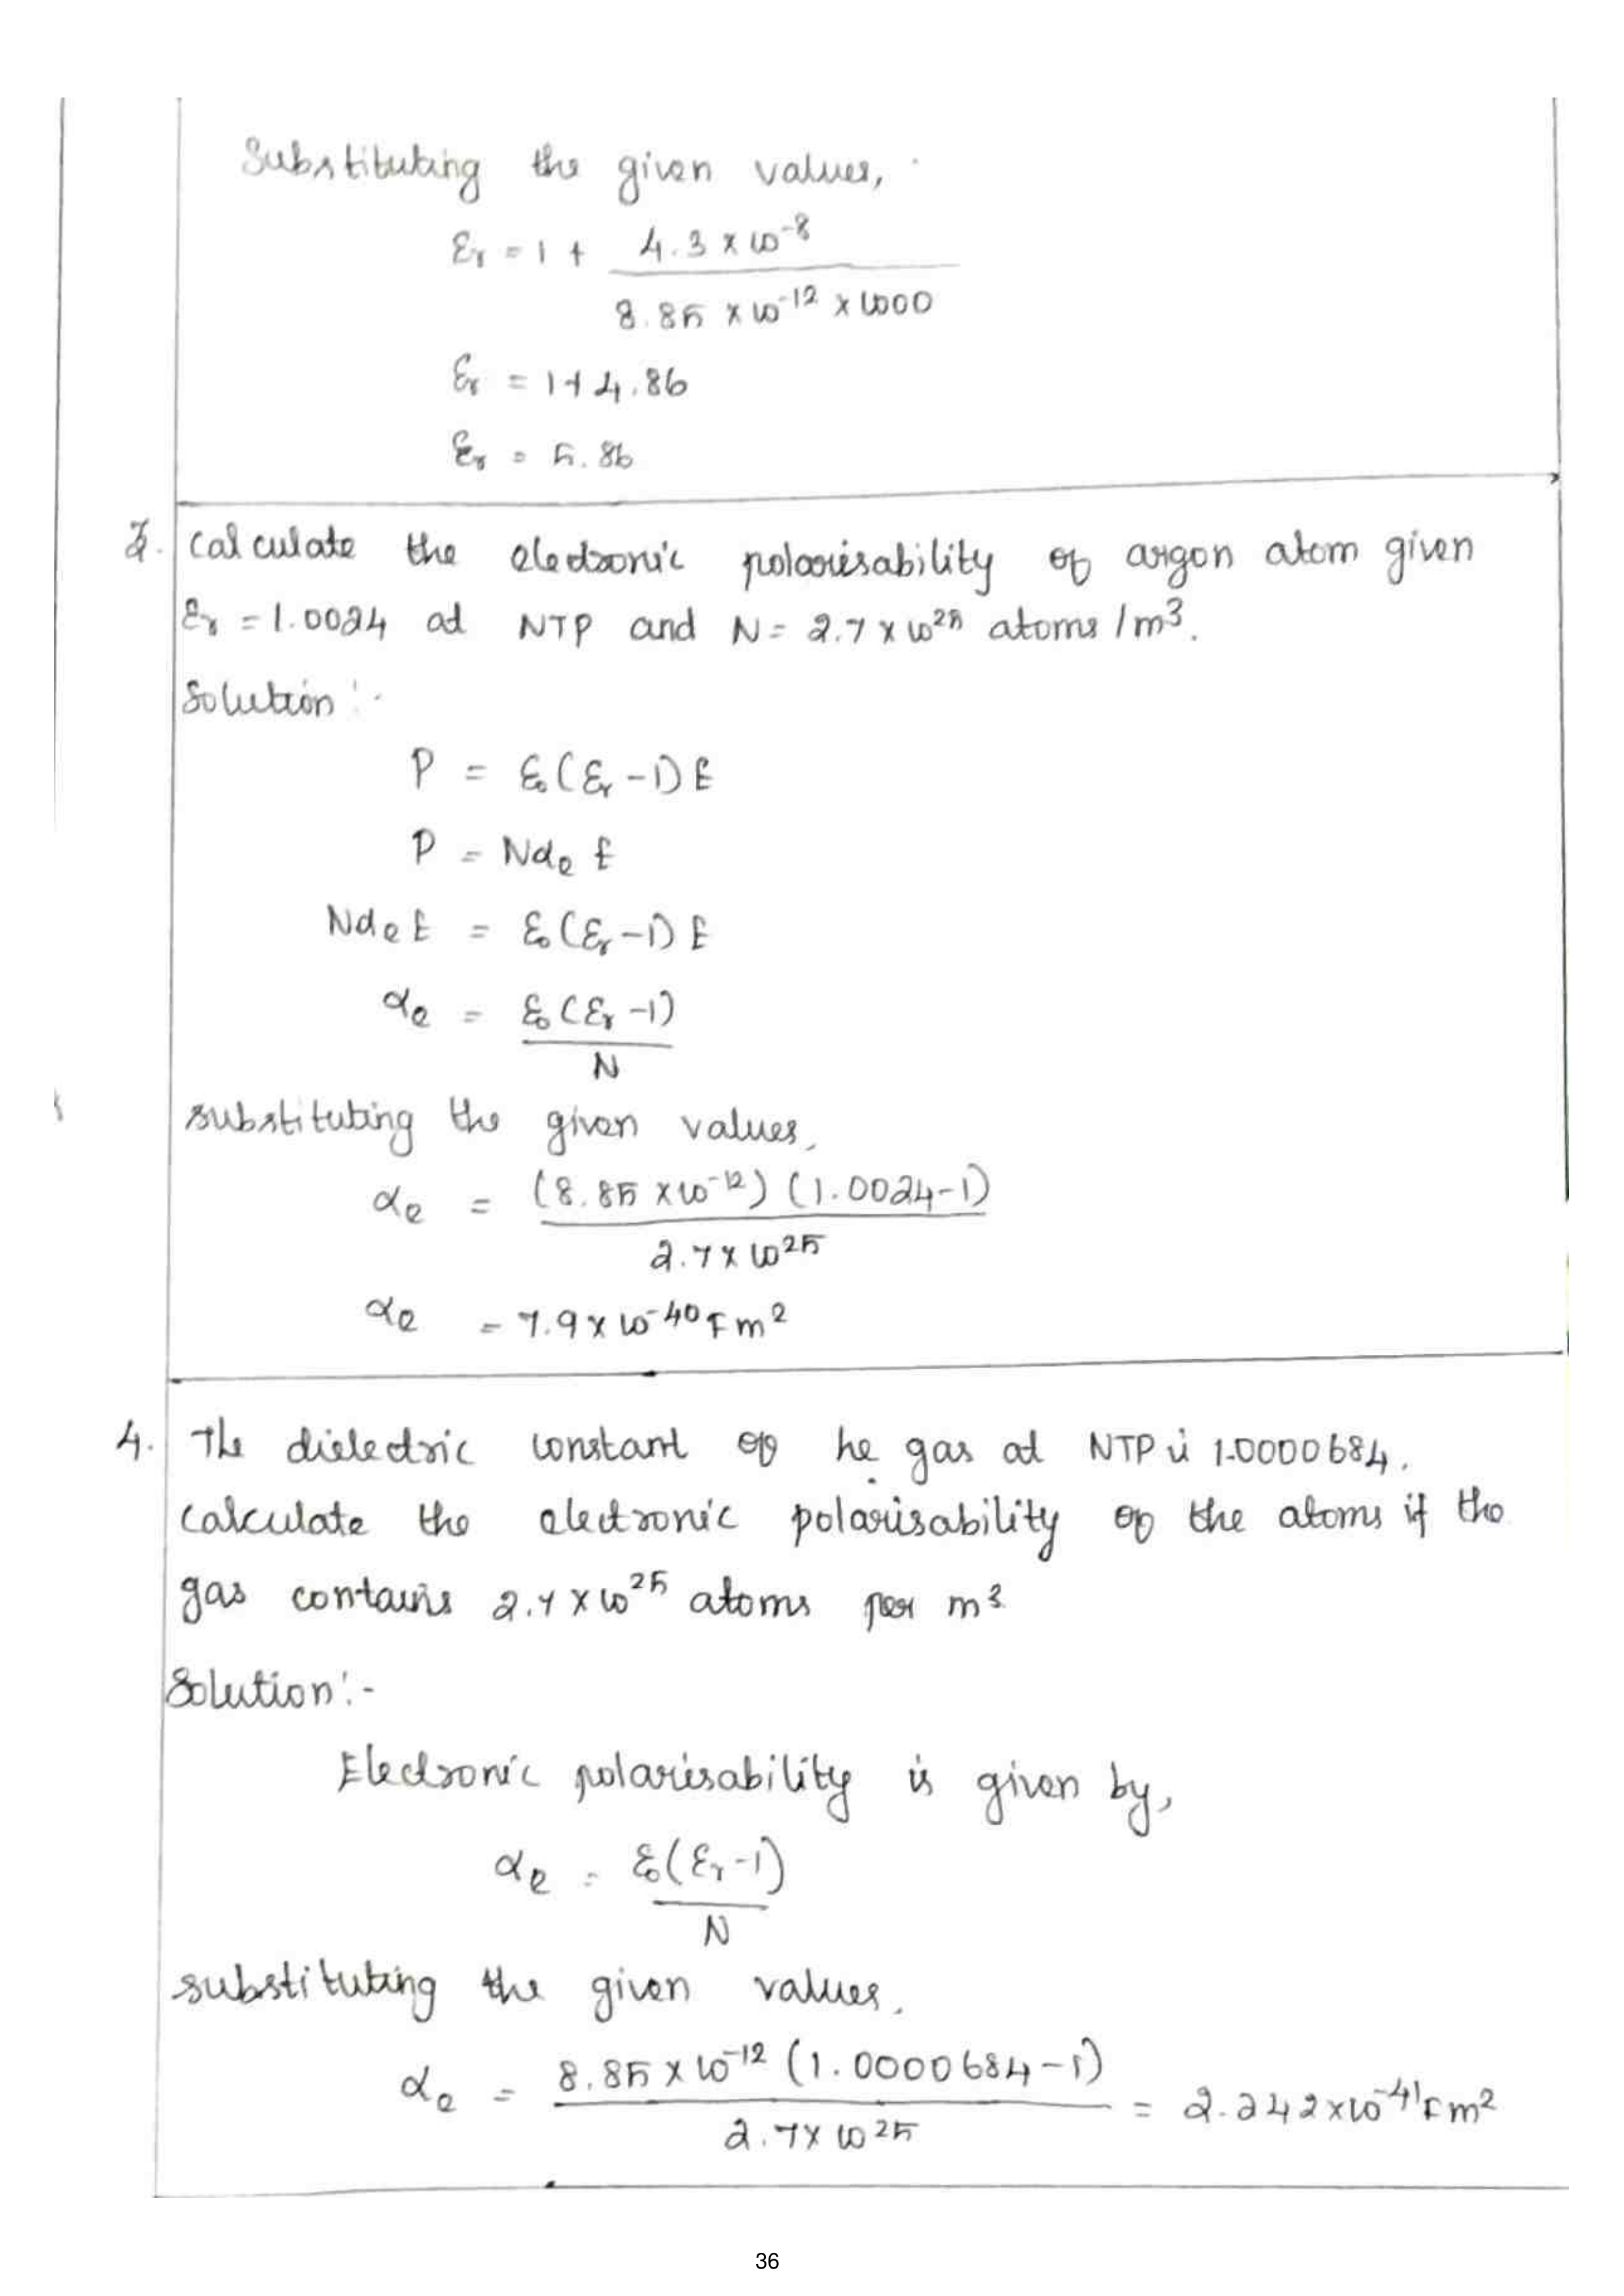 Substituting the given values,
εr = 1 + 4.3 × 10⁻⁸
8.85 × 10⁻¹² × 1000
εr = 1+4.86
εr = 5.86
3. Calculate the electronic polarisability of argon atom given
εr = 1.0024 at NTP and N = 2.7 × 10²⁵ atoms / m³.
Solution :-
P = ε₀(εr - 1) E
P = Nαe E
Nαe E = ε₀(εr - 1) E
αe = ε₀(εr - 1)
N
substituting the given values,
αe = (8.85 × 10⁻¹²) (1.0024 - 1)
2.7 × 10²⁵
αe = 7.9 × 10⁻⁴⁰ F m²
4. The dielectric constant of he gas at NTP is 1.0000684.
Calculate the electronic polarisability of the atoms if the
gas contains 2.7 × 10²⁵ atoms per m³
Solution :-
Electronic polarisability is given by,
αe = ε₀(εr - 1)
N
substituting the given values.
αe = 8.85 × 10⁻¹² (1.0000684 - 1) = 2.242 × 10⁻⁴¹ F m²
2.7 × 10²⁵
36